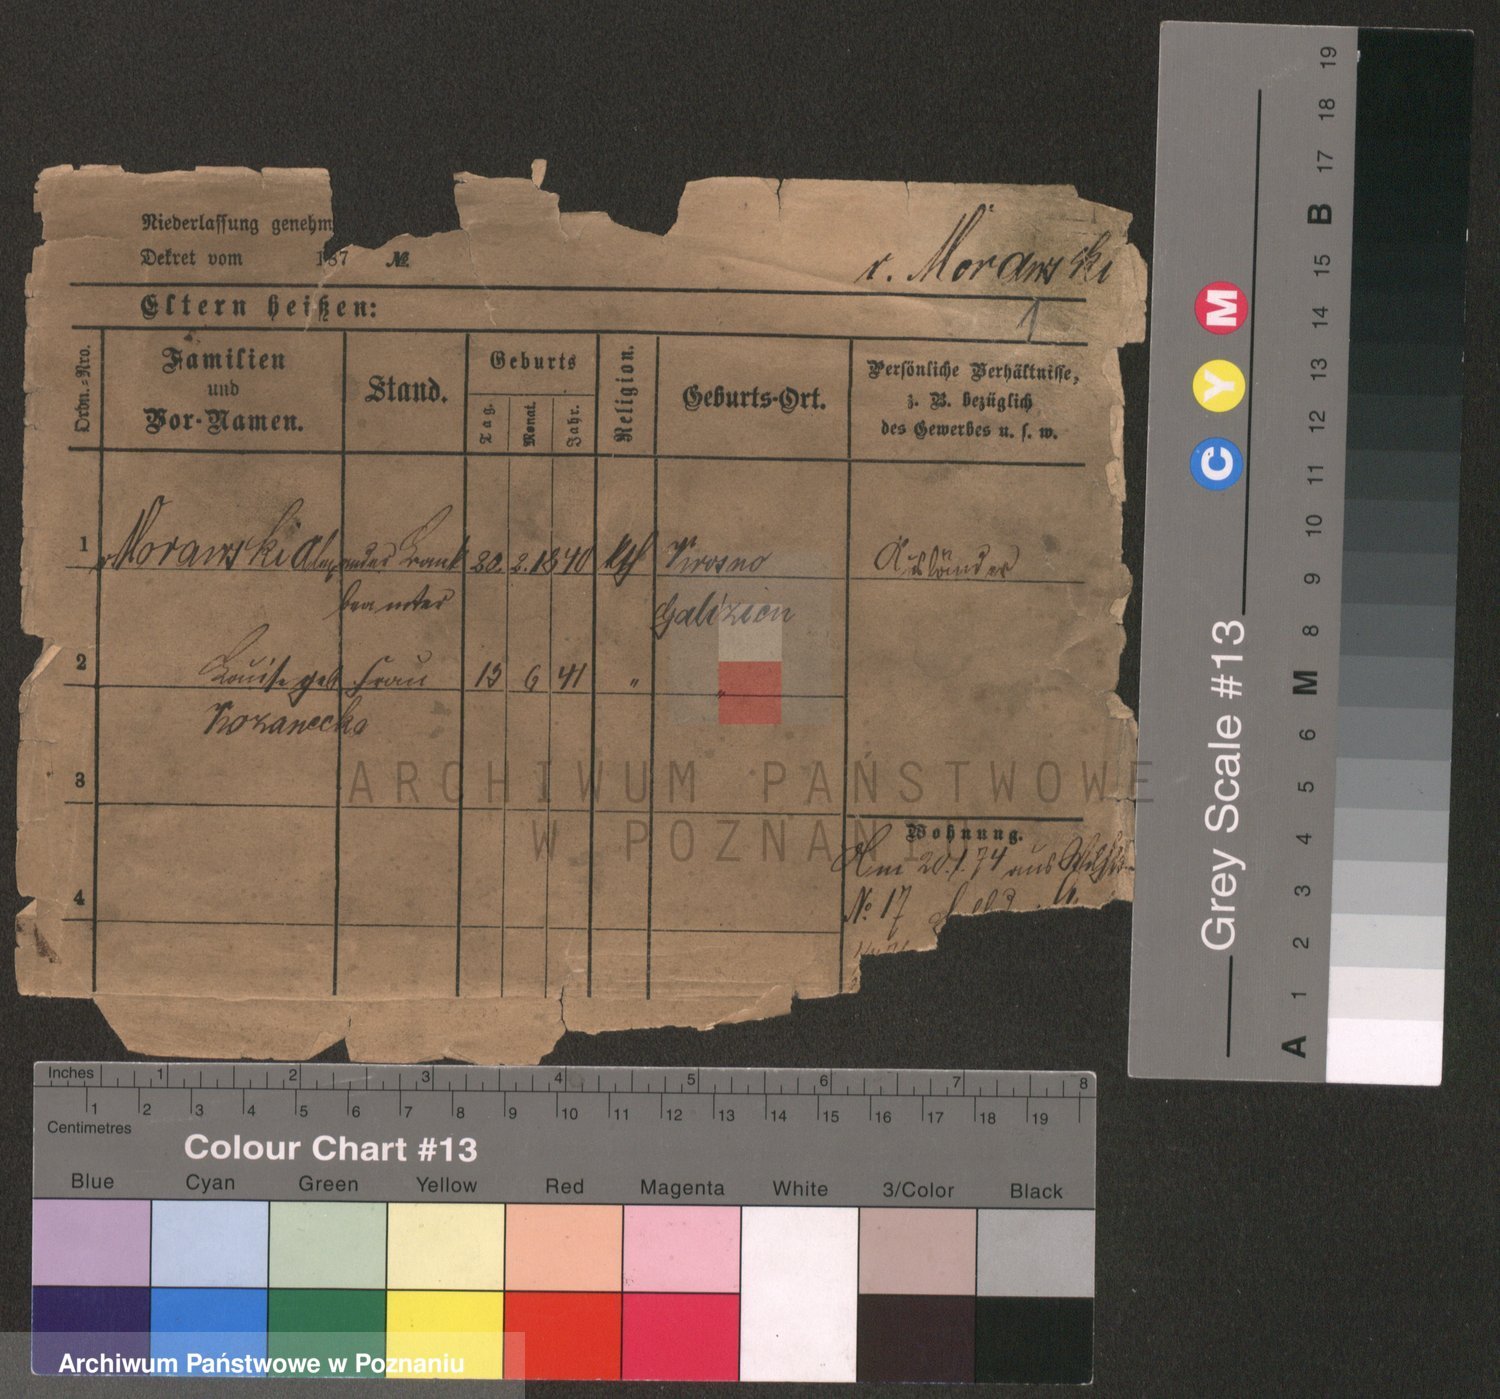 Niederlassung genehm
Dekret vom 187 №
v. Morawski
Eltern heißen:
Ordn.-Nro.
Familien und Vor-Namen.
Stand.
Geburts
Tag.
Monat.
Jahr.
Religion.
Geburts-Ort.
Persönliche Verhältnisse,
z. B. bezüglich
des Gewerbes u. s. w.
1 v Morawski Alexander Bank 20. 2. 1840 kth Krosno Ausländer
beamter Galizien
2 Louise geb Frau 13 6 41 " "
Kozanecka
3
4
Wohnung.
Am 20.1.74 aus
№ 17
ARCHIWUM PAŃSTWOWE
W POZNANIU
Inches 1 2 3 4 5 6 7 8
1 2 3 4 5 6 7 8 9 10 11 12 13 14 15 16 17 18 19
Centimetres
Colour Chart #13
Blue Cyan Green Yellow Red Magenta White 3/Color Black
Archiwum Państwowe w Poznaniu
Grey Scale #13
C Y M
A 1 2 3 4 5 6 M 8 9 10 11 12 13 14 15 B 17 18 19